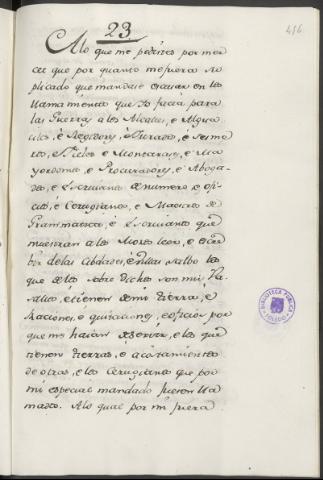 23
416
A lo que me pedistes por mer
cet que por quanto me fuera su
plicado que mandase escusar en los
llamamientos que Yo facia para
las Guerras a los Alcaldes, e Algua
ciles, e Regidores, e Jurados, e Sesme
ros, e Fieles e Montaraces, e Ma
yordomos, e Procuradores, e Aboga
dos, e Escrivanos de numero, e Fi
sicos, e Cerugianos, e Maestros de
Grammatica, e Escrivanos que
muestran a los Mozos leer, e escri
bir de las Cibdades, e Villas salbo los
que de los sobre dichos son mis Va
sallos, e tienen de mi tierra, e
Raciones, e quitaciones, e oficios por
que me haian de servir, e los que
tienen tierras, e acostamientos
de otros, e los Cerugianos que por
mi especial mandado fueren lla
mados. A lo qual por mi fuera
BIBLIOTECA PUBLICA
TOLEDO